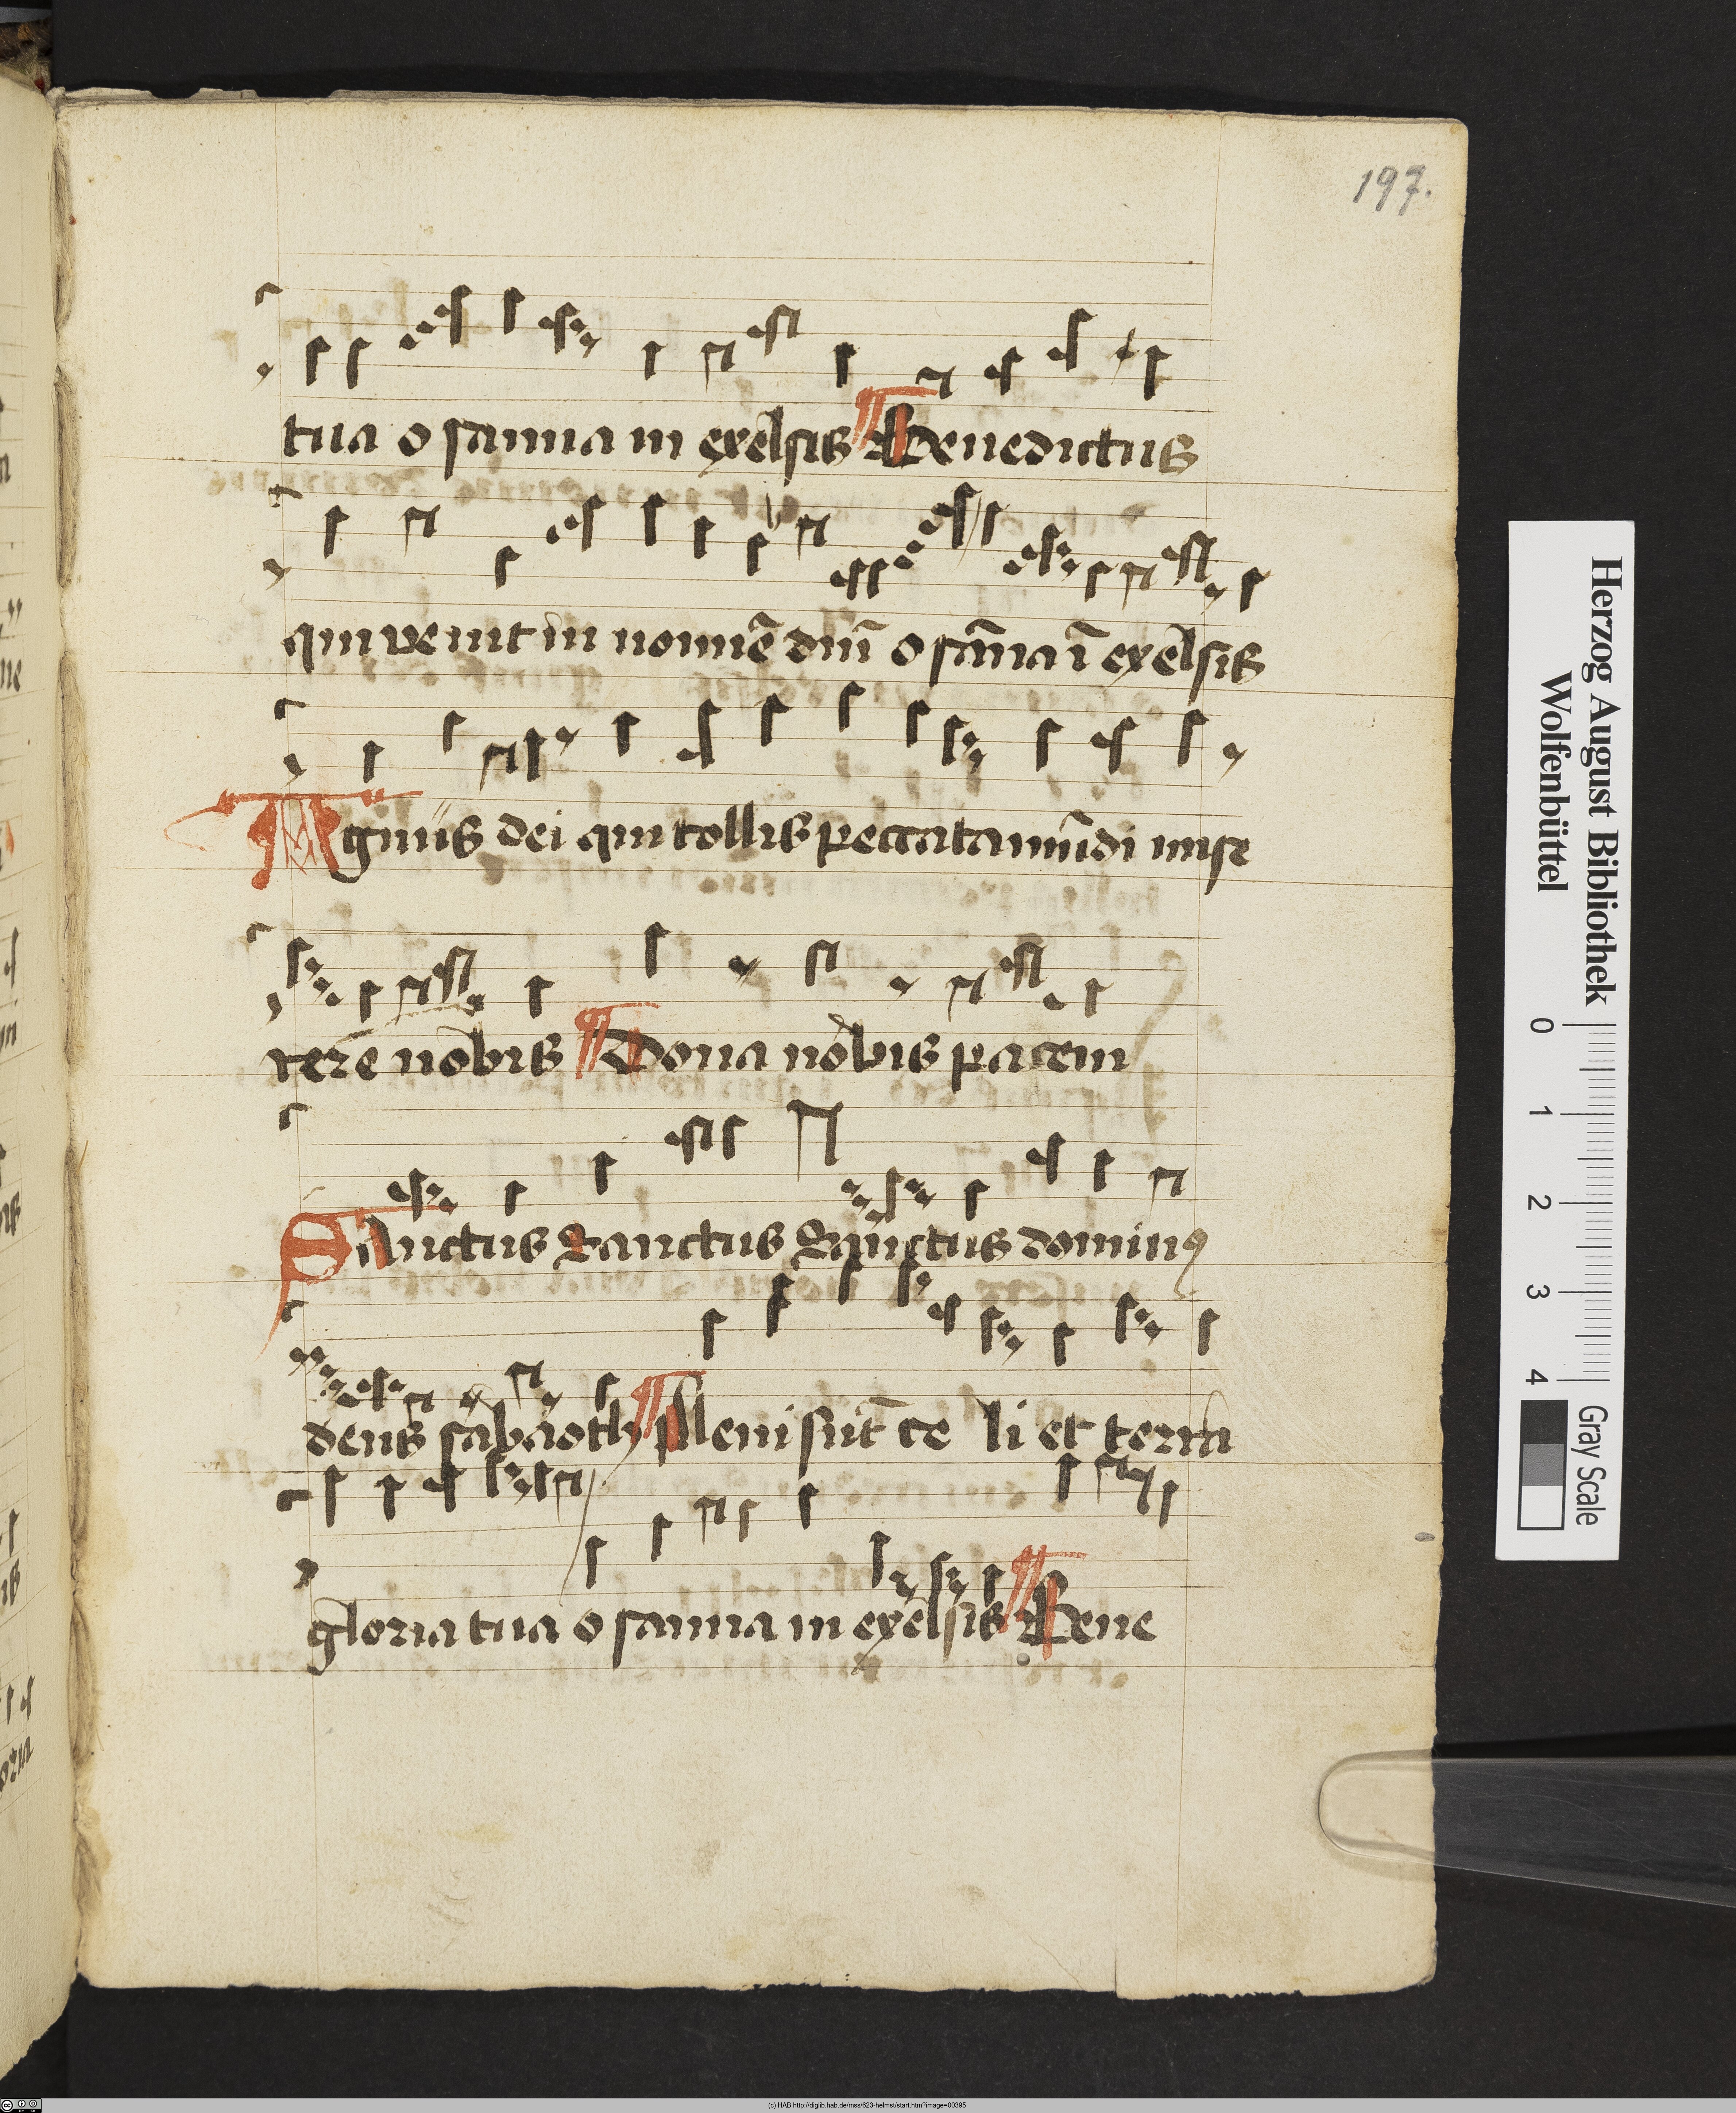 197.
tua osanna in exelsis Benedictus
qui venit in nomīe dnī osāna ī exelsis
Agnus dei qui tollis peccata mūdi mise
rere nobis Dona nobis pacem
Sanctus Sanctus Sanctus dominꝰ
deus sabaoth Pleni sūt ce li et terra
gloria tua osanna in exelsis Bene
Herzog August Bibliothek
Wolfenbüttel
0 1 2 3 4
Gray Scale
(c) HAB http://diglib.hab.de/mss/623-helmst/start.htm?image=00395